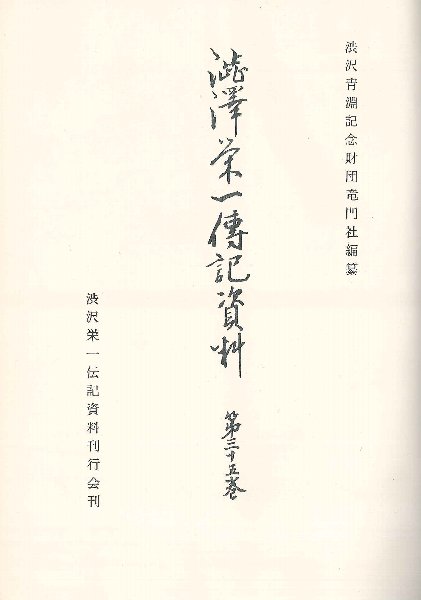 渋沢青淵記念財団竜門社編纂
澁澤栄一傳記資料
第三十五巻
渋沢栄一伝記資料刊行会刊